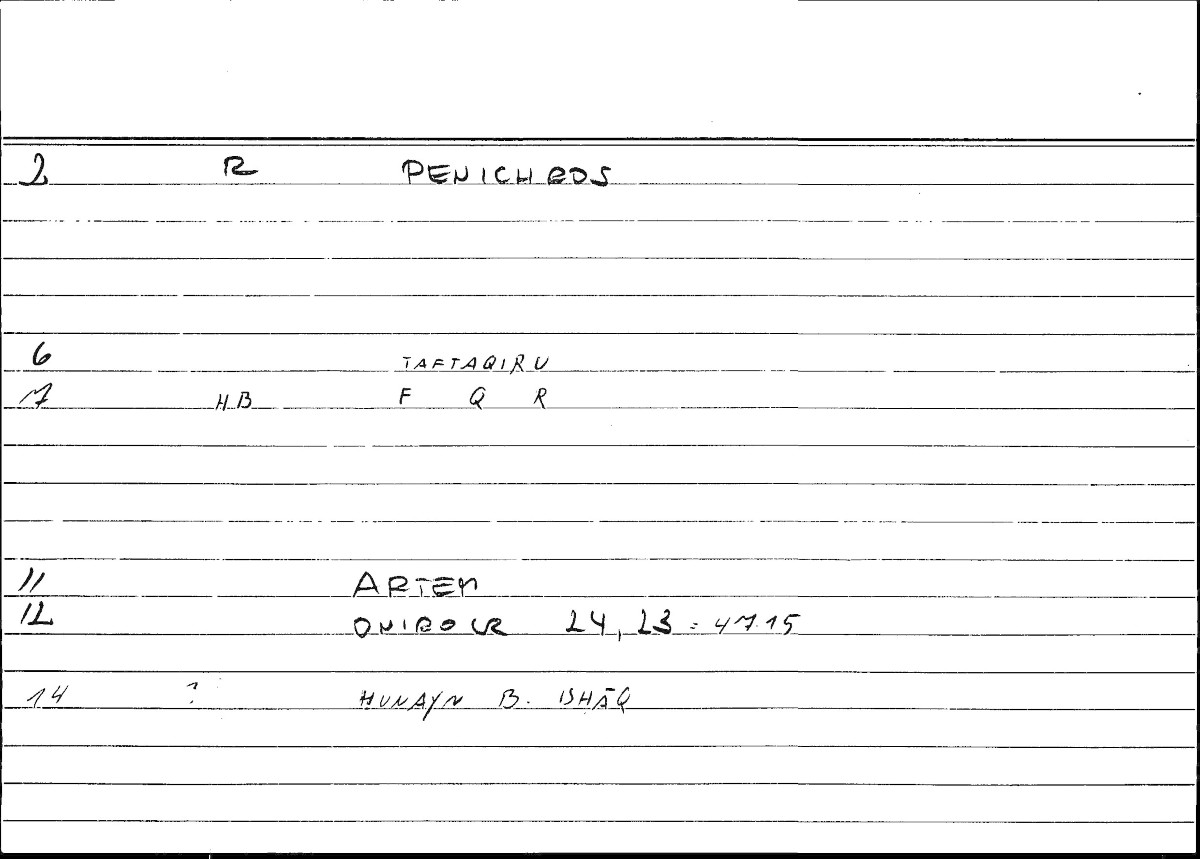 2 R PENICHROS
6 TAFTAQIRU
7 HB F Q R
11 ARTEM
12 ONIROCR 24,23 = 47.15
14 ? HUNAYN B. ISHĀQ